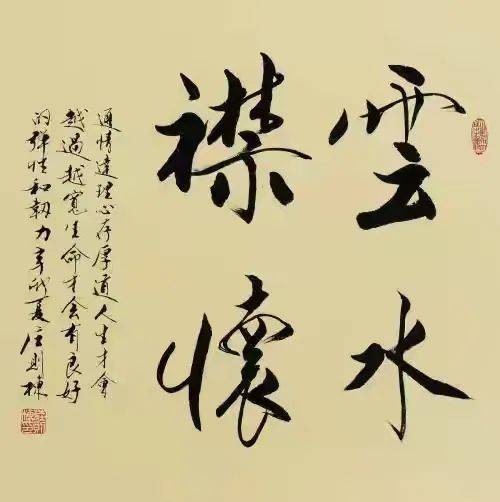 雲水
襟懷
通情達理心存厚道人生才會
越過越寬生命才会有良好
的弹性和韌力辛卯夏庄則棟